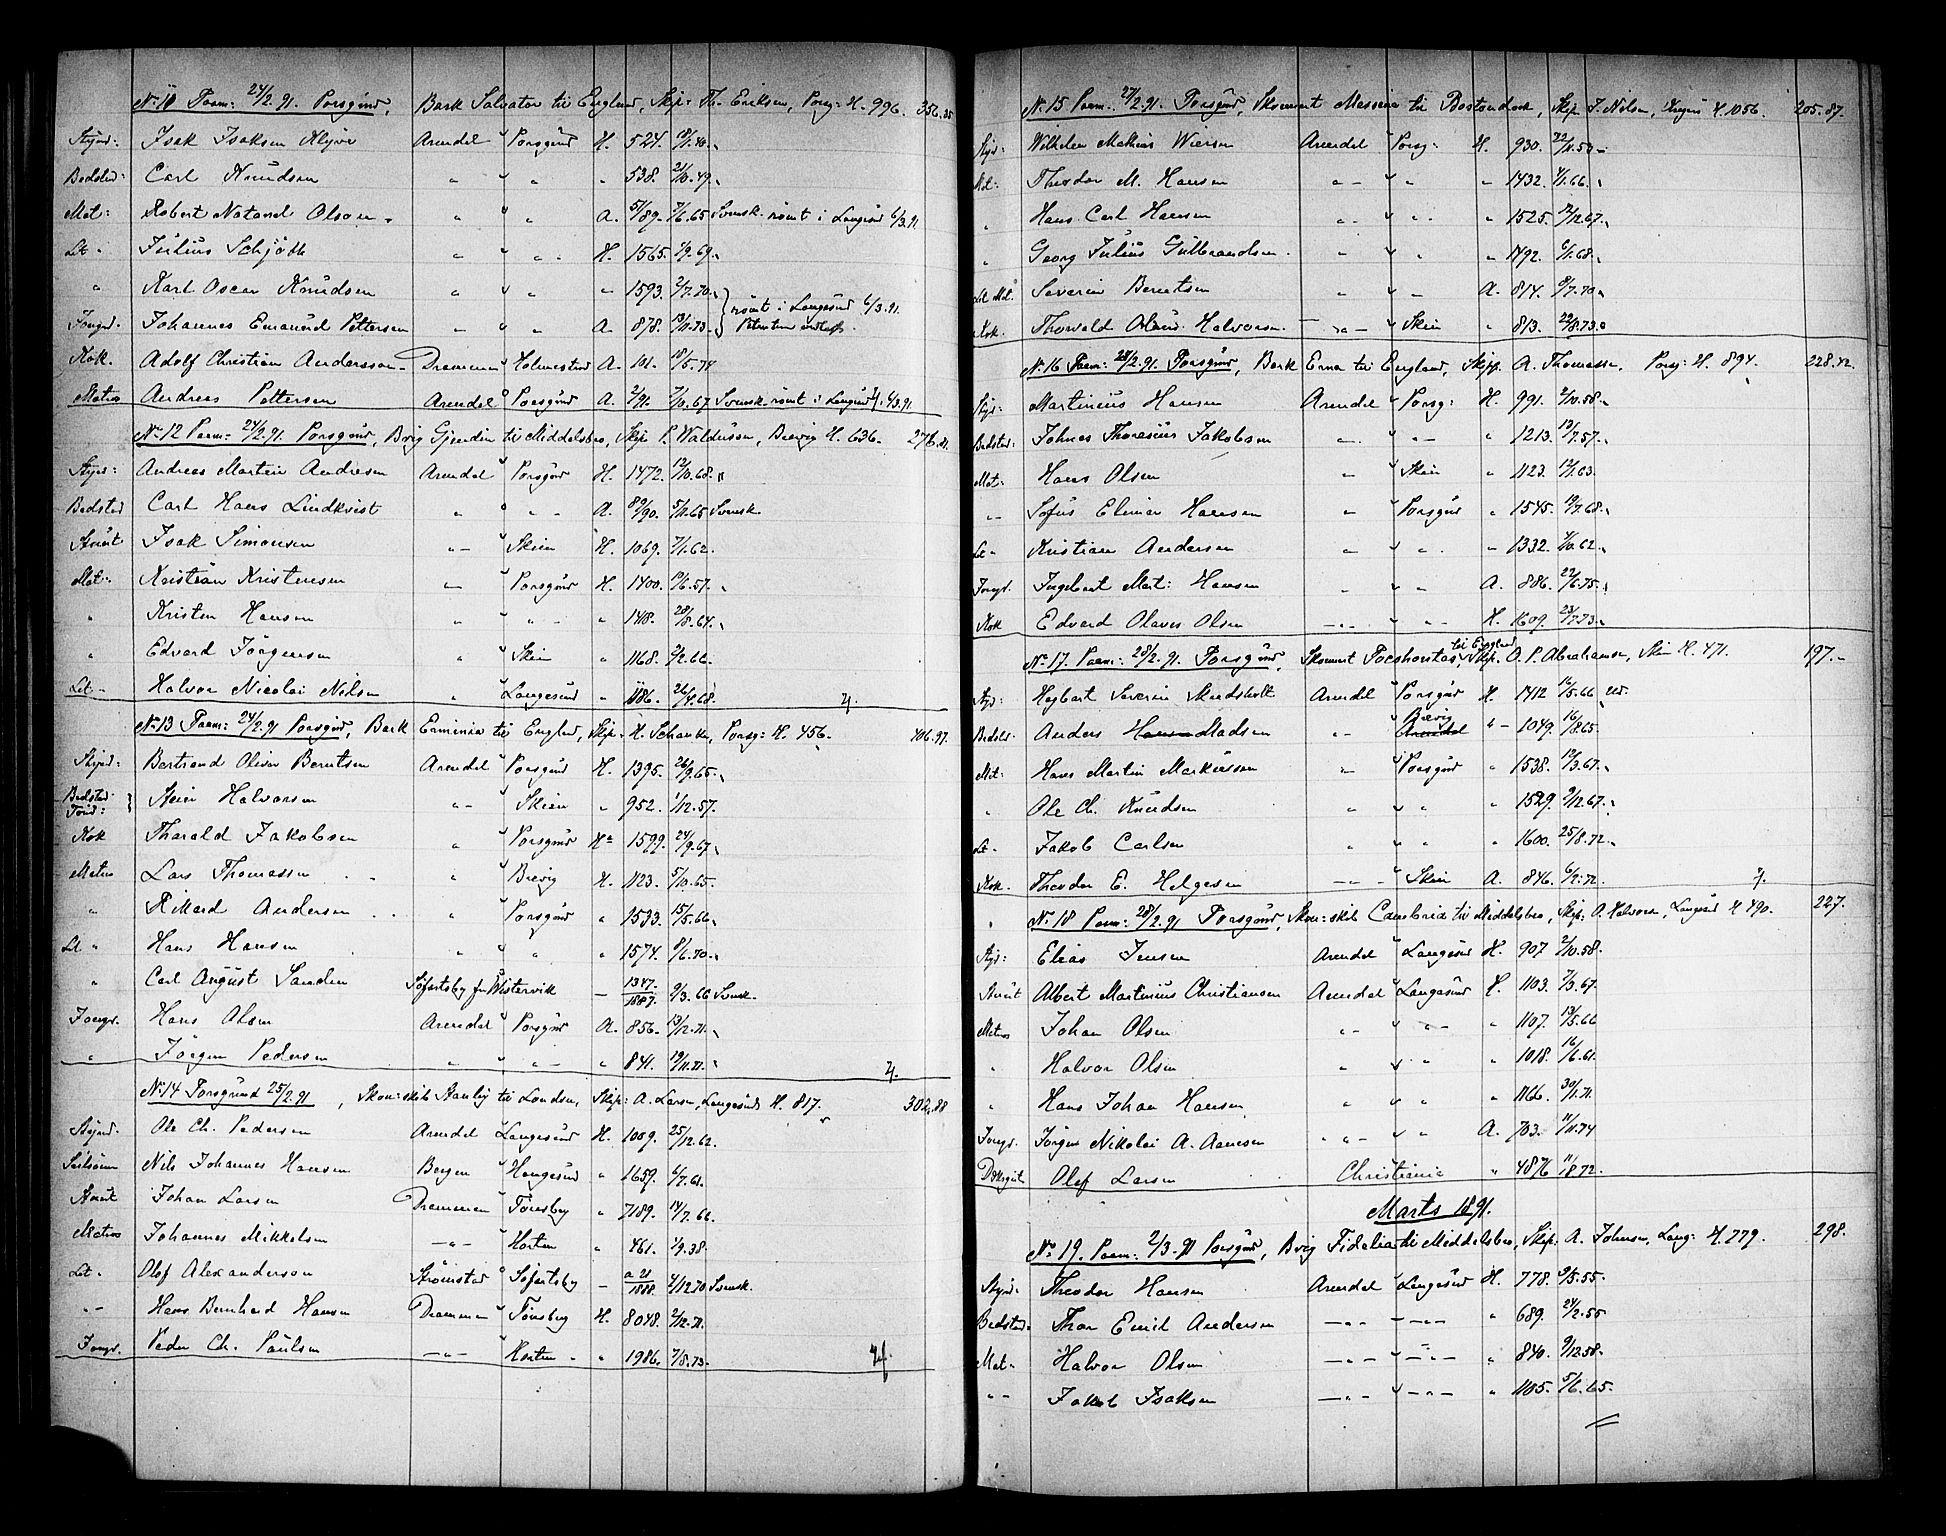 No 11 Paam: 24/2.91. Porsgrund, Bark Salvator til England, Skip: Th. Eriksen, Porsg: H. 996. 356.35
Styrm: Isak Isaksen Klyve Arendal " Porsgrund H. 524. 19/1.40.
Bedstm: Carl Knudsen " " " " 538. 2/10.49.
Mat: Robert Natanel Olsen " " " A. 51/89. 7/6.65 Svensk rømt i Langesund 6/3.91
Let " Julius Schjøth " " " H. 1565. 1/9.69.
" Karl Oscar Knudsen " " " " 1593. 2/7.70. rømt i Langesund 6/3.91.
Jungm. Johannes Emanuel Pettersen " " " A. 878. 13/11.73. Petersen
Kok. Adolf Christian Andersson Drammen " Holmestrand A. 101. 18/5.74
Matros Andreas Pettersen Arendal " Porsgrund A. 2/91. 7/10.67 Svensk rømt i Langesund 4/3.91
No 12 Paam: 24/2.91. Porsgrund, Brig Gjendin til Middelsbro, Skip P. Waldersen, Brevig H. 636. 276.81.
Styrm: Andreas Martin Andresen Arendal " Porsgrund H. 1472. 12/10.68.
Bedstm Carl Hans Lindkvist " " " A. 89/90. 5/11.65 Svensk
Stuert Isak Simonsen " " Skien H. 1069. 7/1.62.
Mat: Kristian Kristensen " Porsgrund H. 1400. 19/6.57.
" Kristen Hansen " " " " 1418. 20/8.64.
" Edvard Jørgensen " Skien " 1168. 2/2.66.
Let " Halvor Nicolai Nilsen " Langesund " 1186. 26/4.68.
No 13 Paam: 24/2.91 Porsgrund, Bark Erminia til England, Skip: H. Schanke, Porsg: H. 456. 406.97.
Styrm: Bertrand Oliver Berntsen Arendal " Porsgrund H. 1395. 26/9.65.
Bedstm Tømm: Steen Halvorsen " " Skien " 952. 1/12.57.
Kok Tharald Jakobsen " " Porsgrund H. 1599. 24/9.67.
Matros Lars Thomassen " " Brevig H. 1123. 5/10.65.
" Rikard Andersen " " Porsgrund " 1533. 15/5.66.
Let " Hans Hansen " " " " 1574. 8/6.70.
" Carl August Sanden Søfartsby fr Westervik - 1347/1887. 9/3.66 Svensk.
Jungm. Hans Olsen Arendal " Porsgrund A. 856. 13/12.71.
" Jørgen Pedersen " " " " 841. 19/11.71.
No 14 Porsgrund 25/2.91, Skon: skib Stanley til London, Skip: A. Larsen, Langesund H. 817. 302.88
Styrm. Ole Ch. Pedersen Arendal " Langesund H. 1009. 25/12.62.
Nils Johannes Hansen Bergen " Haugesund " 1659. 6/7.61.
Stuert Johan Larsen Drammen " Tønsberg " 7189. 14/7.66.
Matros Johannes Mikkelsen " Horten " 461. 1/9.38.
Let " Olof Alexanderson Strømstad " Søfartsby - a 21/1888. 4/12.70 Svensk.
" Hans Bernhard Hansen Drammen " Tønsberg H. 8048. 2/12.71.
Jungm. Peder Ch. Paulsen " " Horten " 1986. 7/8.73.
No 15 Paam: 27/2.91. Porsgrund, Skonnert Messina til Bostondock, Skip J. Nilsen, H. 1056. 205.87.
Styr: Wilhelm Mathias Wiersen Arendal " Porsg: H. 930. 22/11.50
Mat: Theodor M. Hansen " " " " 1432. 4/1.66.
" Hans Carl Hansen " " " " 1525. 12/12.67.
" Georg Julius Gulbrandsen " " " " 1492. 6/1.68.
Let Mat: Severin Berntsen " " " A. 814. 9/7.70
Kok. Thorvald Olaus Halvorsen " " Skien " 813. 22/8.73.
No 16 Paam: 28/2.91. Porsgrund, Bark Erna til England, Skip. A. Thomassen. Porsg: H. 894. 228.42.
Styr: Martinius Hansen Arendal " Porsg: H. 991. 2/10.58.
Bedstm: Johnes Thoresius Jakobsen " " " " 1213. 13/7.57.
Mat: Hans Olsen " Skien " 1123. 12/1.63.
" Sofus Elimar Hansen " Porsgrund " 1545. 19/7.68.
Let " Kristian Andersen " " " " 1332. 7/10.62.
Jungm. Ingebret Mart: Hansen " " " A. 886. 22/6.75.
Kok Edvard Olaves Olsen " " " H. 1609. 23/7.73.
No 17. Paam: 28/2.91. Porsgrund, Skonnert Pocshontas, til England Skip. O. P. Abrahamsen, Skien H. 471. 197.-
Styr: Hegbart Severin Skredsholt Arendal " Porsgrund H. 1412 12/5.66
Bedstm. Anders Hansen Madsen " " Brevig Arendal " 1049. 16/8.65.
Mat: Hans Martin Markussen " " Porsgrund " 1538. 12/3.67.
" Ole Ch. Knudsen " " " " 1529. 9/12.67.
Let " Jakob Carlsen " " " " 1600. 25/8.72.
Kok. Theodor E. Helgesen " " Skien A. 846. 6/2.72.
No 18 Paam: 28/2.91 Porsgrund, Skon: skib Cambria til Middelsbro, Skip. A. Halvorsen, Langesund H 490. 227.
Styr: Elias Jensen Arendal " Langesund H. 907 2/10.58.
Stuert Albert Martinius Christiansen Arendal " Langesund H. 1103. 7/3.67.
Matros Johan Olsen " " " " 1107. 13/5.66
" Halvor Olsen " " " 1018. 16/6.61.
" Hans Johan Hansen " " " " 1166. 30/1.71.
Jungm. Jørgen Nikolai A. Aanesen " " " A. 703. 11/11.74
Dæksgut Olof Larsen Christiania " 4876 11/1872.
Marts 1891.
No 19. Paam: 2/3.91 Porsgrund, Brig Fidelia til Middelsbro, Skip: A. Johnsen, Lang: H. 779. 298.
Styrm: Theodor Hansen Arendal " Langesund H. 778. 9/5.55.
Bedstm: Thor Emil Andersen " " " " 689. 24/2.55
Mat " Halvor Olsen " " " " 840. 9/12.58.
" Jakob Isaksen " " " " 1105. 5/6.65.